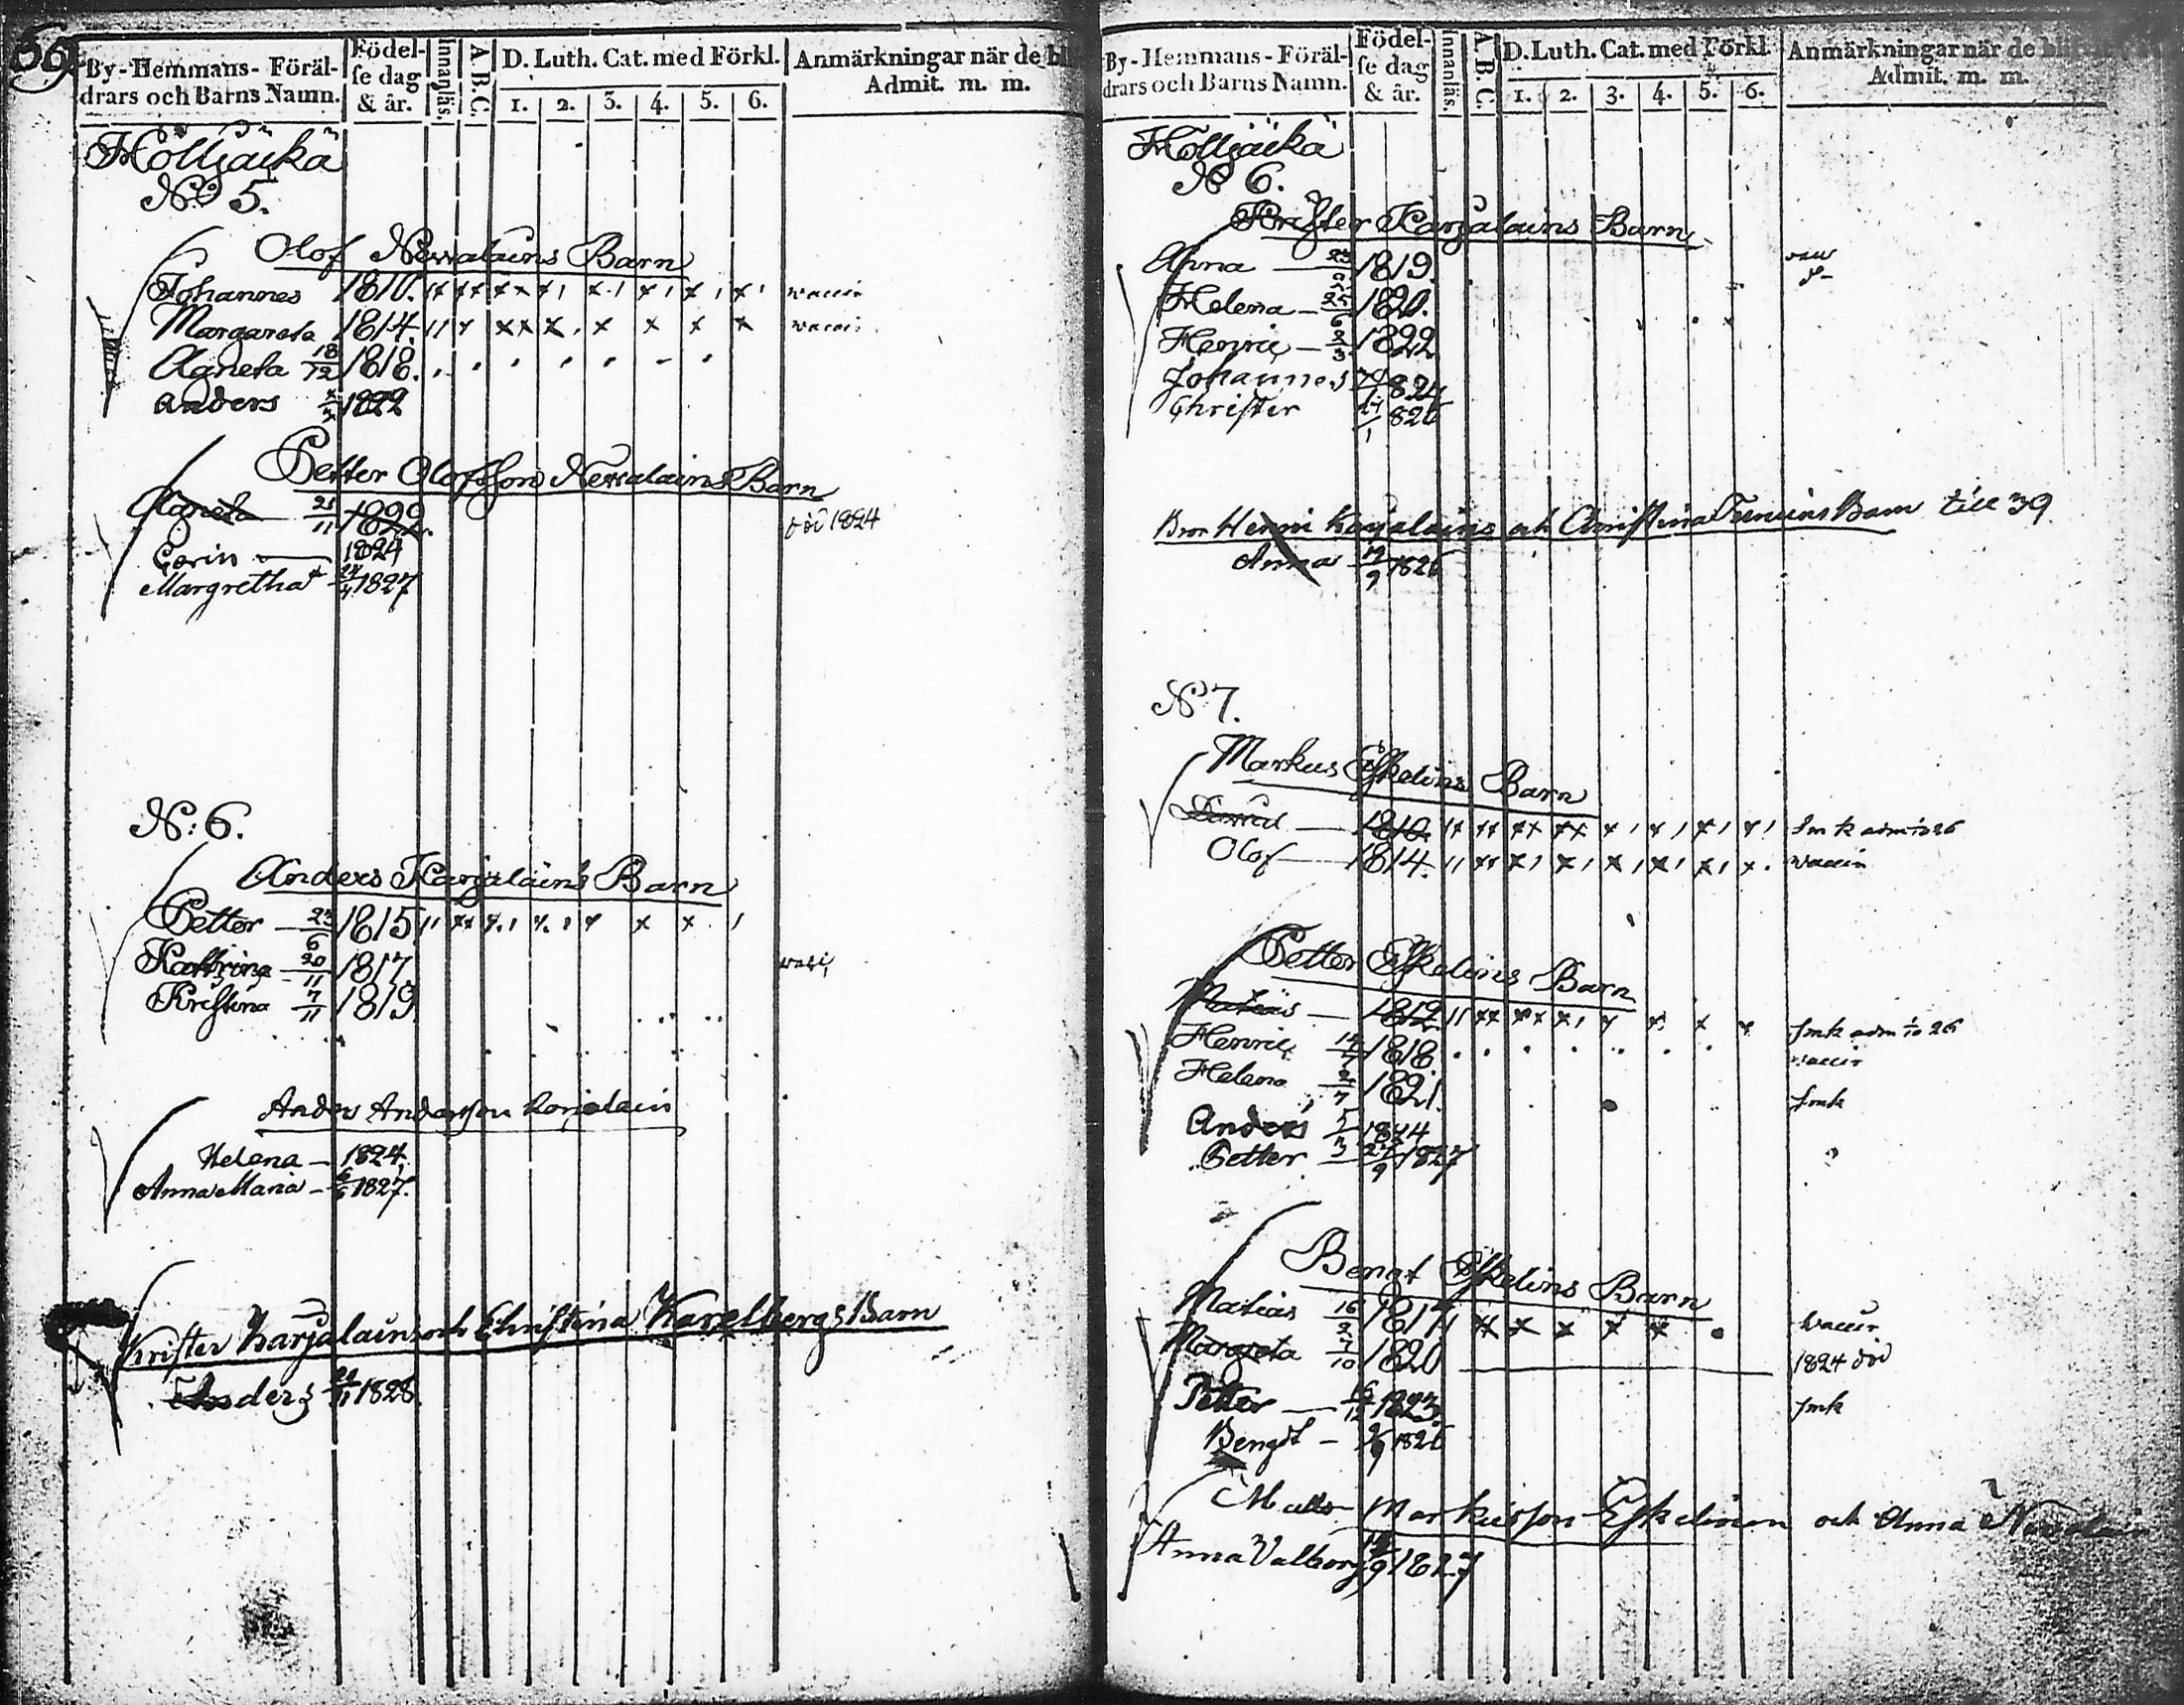 569
By-Hemmans- Föräl-
drars och Barns Namn.
Födel-
se dag
& år.
Innanläs.
A. B. C.
D. Luth. Cat. med Förkl.
1. 2. 3. 4. 5. 6.
Anmärkningar när de bl
Admit. m. m.
Hölljäkä
No 5.
Olof Nevalains Barn
Johannes 1810. vaccin
Margareta 1814. vaccin
Agneta 18/12 1818.
Anders 1822
Petter Olofsson Nevalains Barn
Agneta 21/11 1822. död 1824
Carin 1824
Margretha 1827
N: 6.
Anders Karjalains Barn
Petter 23/6 1815
Kattrina 20/11 1817.
Kristina 7/11 1819
Anders Andersson Karjalain
Helena 1824.
Anna Maria 1827.
Krister Karjalains och Christina Karelbergs Barn
Anders 1828
By-Hemmans-Föräl-
drars och Barns Namn.
Födel-
se dag
& år.
Innanläs.
A. B. C.
D. Luth. Cat. med Förkl
1. 2. 3. 4. 5. 6.
Anmärkningar när de bli
Admit. m. m.
Hölljäkä
N 6.
Krister Karjalains Barn
Anna 1819.
Helena 1820.
Henric 2/3 1822
Johannes 1824
Christer 1826
Bror Henric Karjalains och Christina Barn till 39
Anna 19/9 1826
N 7.
Markus Eskelins Barn
1810. adm 1/10 26
Olof 1814. vaccin
Petter Eskelins Barn
Matias 1812 smk adm 1/10 26
Henric 1818 vaccin
Helena 2/7 1821. smk
Anders 5/3 1824
Petter 27/9 1827
Bengt Eskelins Barn
Matias 16/2 1817 vaccin
Margreta 7/10 1820 1824 död
Petter 1823. smk
Bengt 1826
Matts Markusson Eskelinen och Anna
Anna Valborg 1827